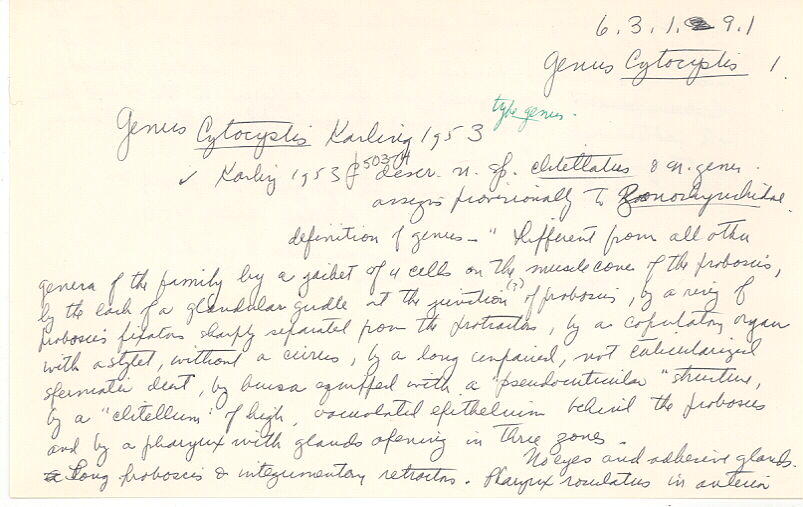 6. 3. 1. 9. 1
Genus Cytocystis 1.
type genus.
Genus Cytocystis Karling 1953
✓ Karling 1953 p 503 descr. n. sp. clitellatus & n. genus.
assigns provisionally to
definition of genus – " Different from all other
genera of the family by a jacket of 4 cells on the muscle cone of the proboscis,
by the lack of a glandular girdle at the junction (?) of proboscis, by a ring of
proboscis fixators sharply separated from the protractors, by a copulatory organ
with a stylet, without a cirrus, by a long unpaired, not cuticularized
spermatic duct, by bursa equipped with a "pseudocuticular" structure,
by a "clitellum" of high, vacuolated epithelium behind the proboscis
and by a pharynx with glands opening in three zones.
No eyes and adhesive glands.
Long proboscis & integumentary retractors. Pharynx rosulatus in anterior